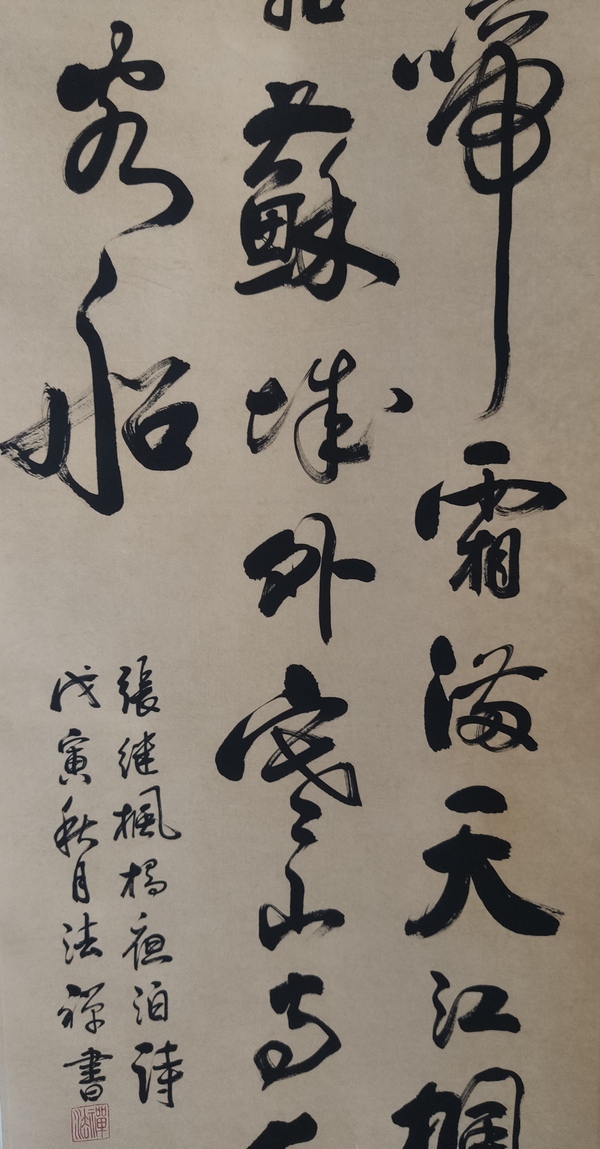 啼霜滿天江楓
姑蘇城外寒山寺
客船
張继楓橋夜泊詩
戊寅秋月法禪書
法禪